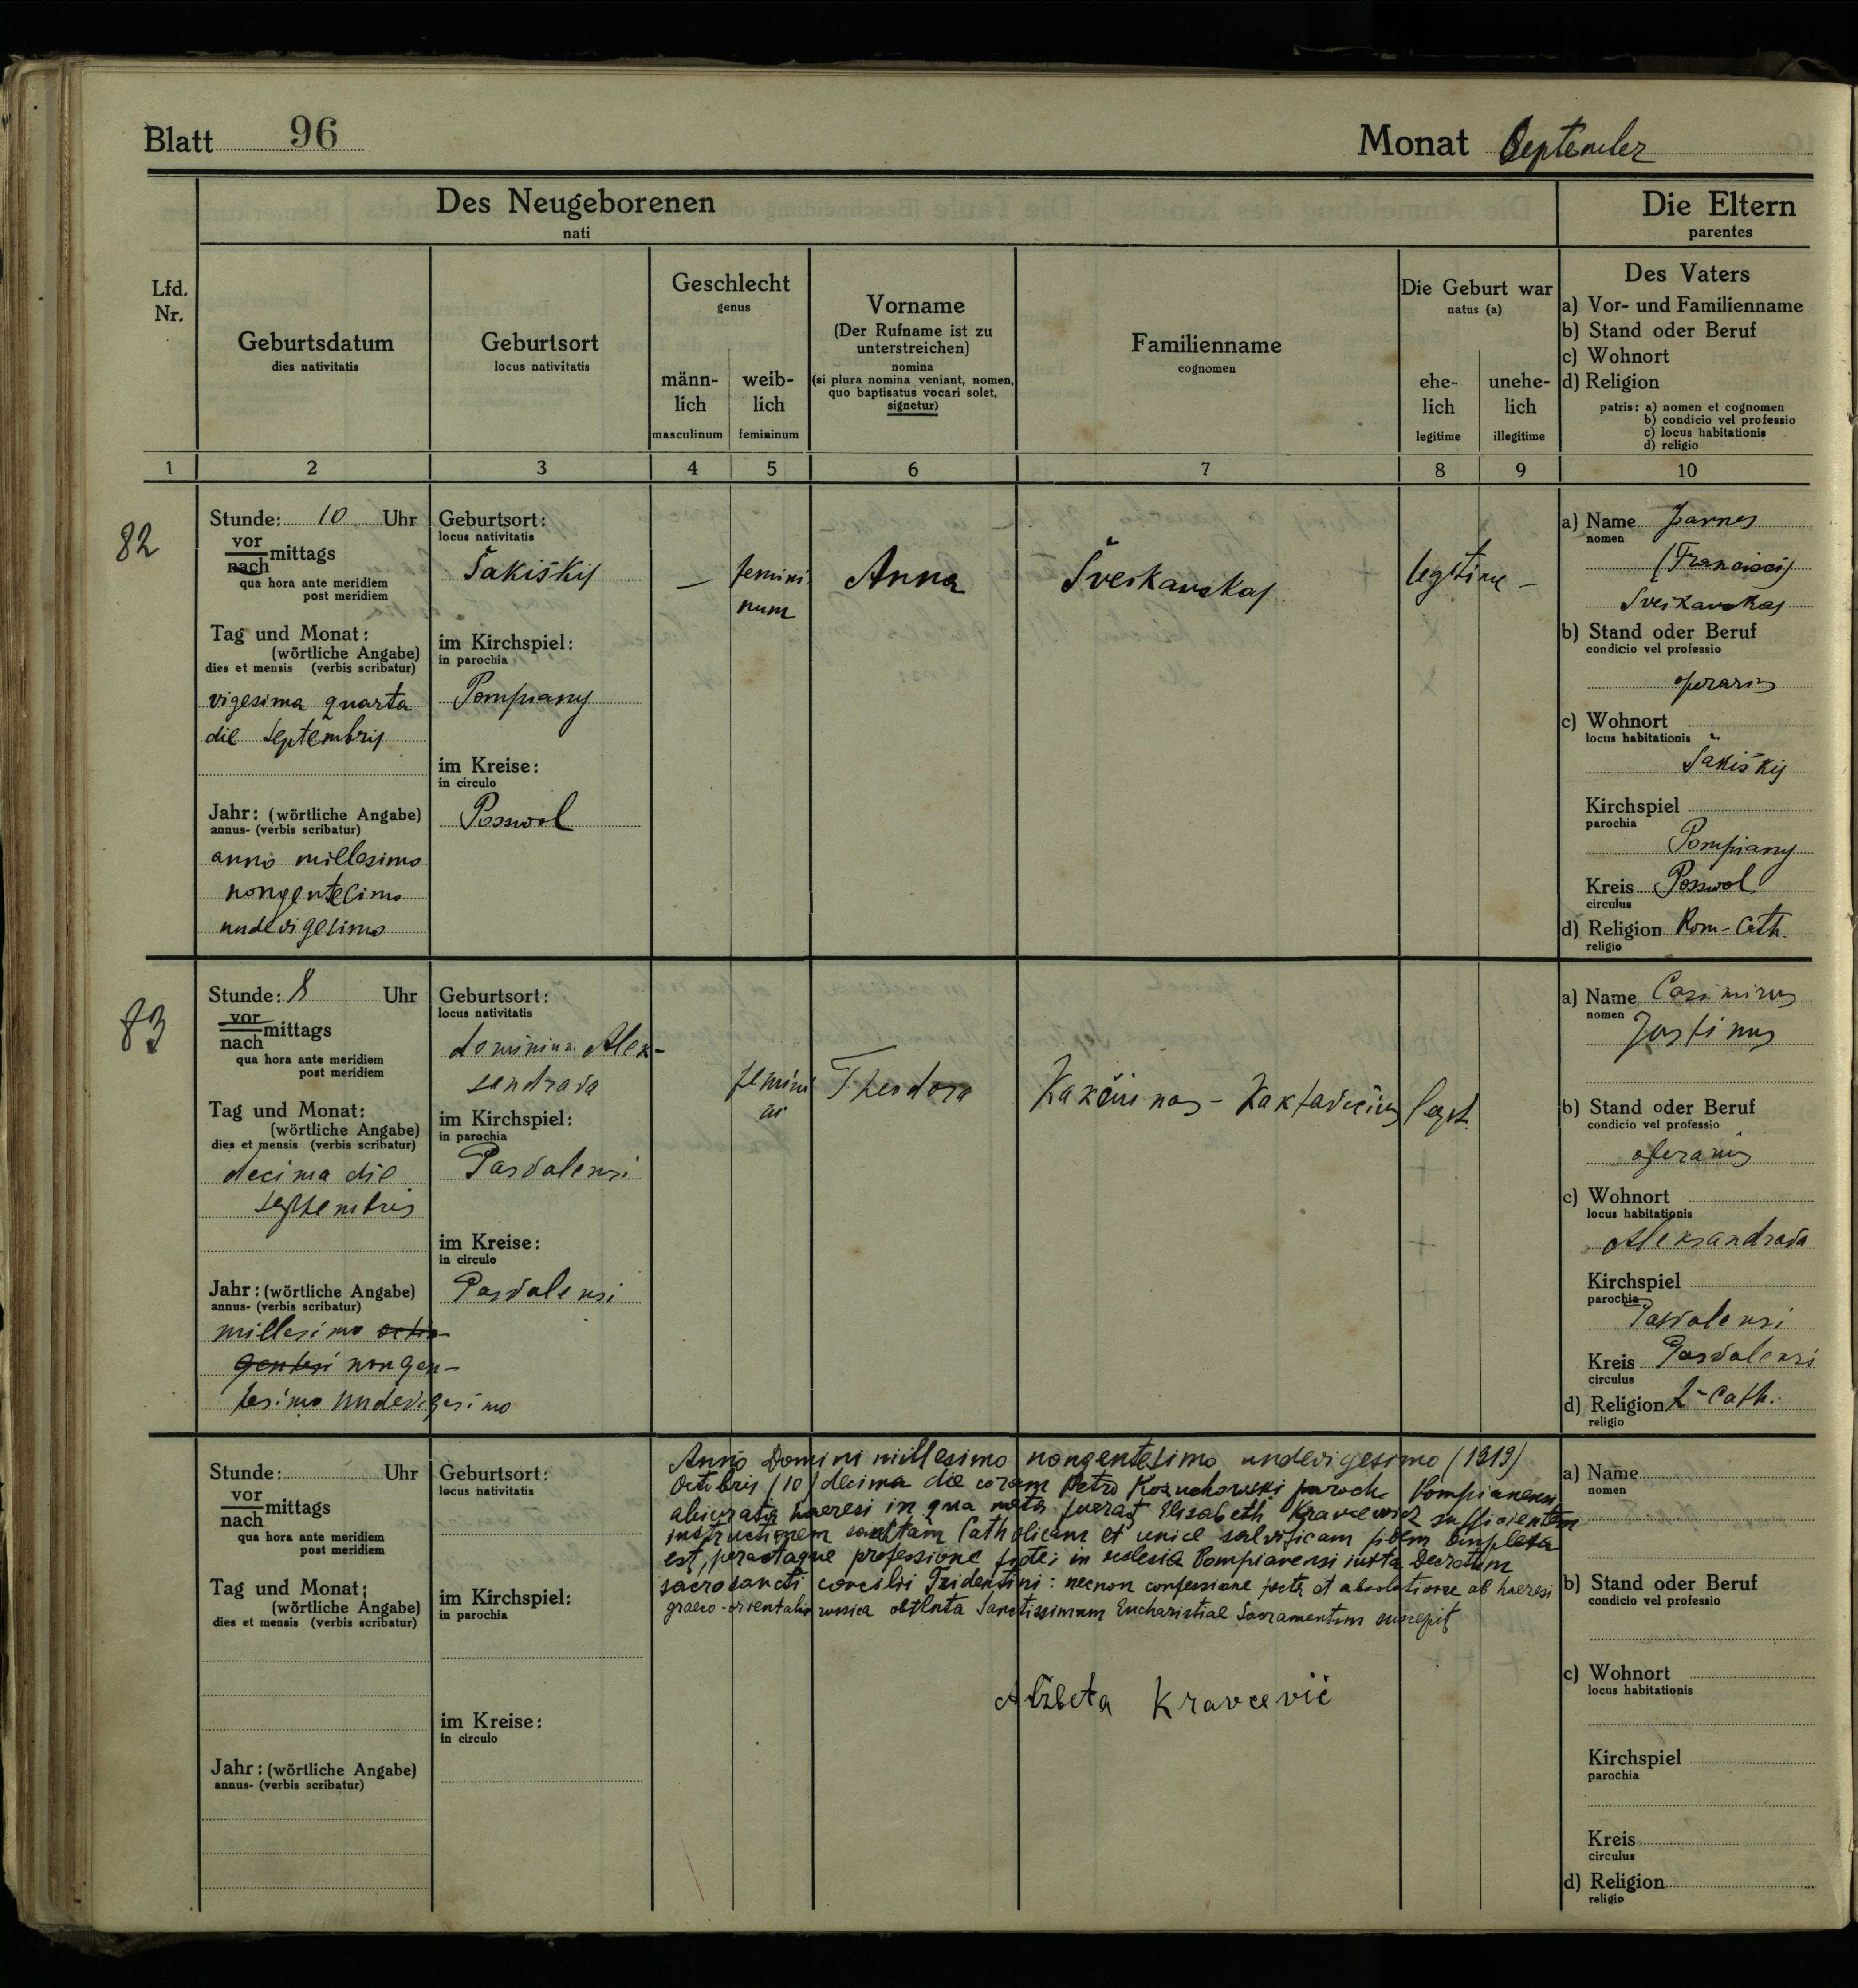 Blatt 96
Monat September
Des Neugeborenen
nati
Die Eltern
parentes
Lfd.
Nr.
Geburtsdatum
dies nativitatis
Geburtsort
locus nativitatis
Geschlecht
genus
männ-
lich
masculinum
weib-
lich
femininum
Vorname
(Der Rufname ist zu
unterstreichen)
nomina
(si plura nomina veniant, nomen,
quo baptisatus vocari solet,
signetur)
Familienname
cognomen
Die Geburt war
natus (a)
ehe-
lich
legitime
unehe-
lich
illegitime
Des Vaters
a) Vor- und Familienname
b) Stand oder Beruf
c) Wohnort
d) Religion
patris: a) nomen et cognomen
b) condicio vel professio
c) locus habitationis
d) religio
1 2 3 4 5 6 7 8 9 10
82
Stunde: 10 Uhr
vor
nach mittags
qua hora ante meridiem
post meridiem
Tag und Monat:
(wörtliche Angabe)
dies et mensis (verbis scribatur)
vigesima quarta
die Septembris
Jahr: (wörtliche Angabe)
annus- (verbis scribatur)
anno millesimo
nongentesimo
undevigesimo
Geburtsort:
locus nativitatis
Šakiškis
im Kirchspiel:
in parochia
Pompiany
im Kreise:
in circulo
Posswol
—
femini
num
Anna
Šveikauskas
legitime —
a) Name
nomen
(Francisci)
Sveikauskas
b) Stand oder Beruf
condicio vel professio
operarius
c) Wohnort
locus habitationis
Šakiškis
Kirchspiel
parochia
Pompiany
Kreis Posswol
circulus
d) Religion Rom-Cath.
religio
83
Stunde: 8 Uhr
vor
nach mittags
qua hora ante meridiem
post meridiem
Tag und Monat:
(wörtliche Angabe)
dies et mensis (verbis scribatur)
decima die
septembris
Jahr: (wörtliche Angabe)
annus- (verbis scribatur)
millesimo octin-
gentesi nongen-
tesimo undevigesimo
Geburtsort:
locus nativitatis
dominium Alek-
sandrava
im Kirchspiel:
in parochia
Pasvalensi
im Kreise:
in circulo
Pasvalensi
femini
Theodora
legit.
a) Name Casimirus
nomen
Justinus
b) Stand oder Beruf
condicio vel professio
operarius
c) Wohnort
locus habitationis
Aleksandrava
Kirchspiel
parochia
Pasvalensi
Kreis Pasvalensi
circulus
d) Religion r-cath.
religio
Stunde: Uhr
vor
nach mittags
qua hora ante meridiem
post meridiem
Tag und Monat:
(wörtliche Angabe)
dies et mensis (verbis scribatur)
Jahr: (wörtliche Angabe)
annus- (verbis scribatur)
Geburtsort:
locus nativitatis
im Kirchspiel:
in parochia
im Kreise:
in circulo
Anno Domini millesimo nongentesimo undevigesimo (1919)
Octobris (10) decima die coram Petro Kozuchowski paroch. Pompianensi
abiurata haeresi in qua nata fuerat Elisabeth Kravcewicz sufficientem
instructionem sanctam Catholicam et unice salvificam fidem amplexa
est, peractaque professione fidei in eclesia Pompianensi iuxta Decretum
sacrosancti concilii Tridentini: necnon confessione facta et absolutione ab haeresi
graeco-orientalis russica obtenta Sanctissimum Eucharistiae Sacramentum suscepit
Alžbeta Kravcevič
a) Name
nomen
b) Stand oder Beruf
condicio vel professio
c) Wohnort
locus habitationis
Kirchspiel
parochia
Kreis
circulus
d) Religion
religio